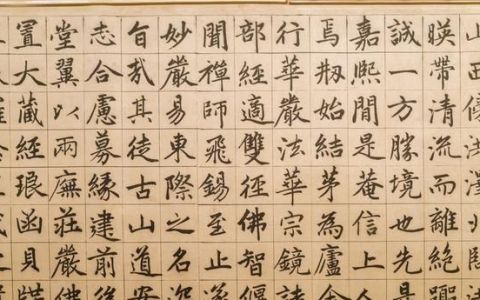 山西傍洪
暎帶清流而離絕
誠一方勝境也先是
嘉熙間是菴信上人
焉剏始結茅為廬舍
行華嚴法華宗鏡諸
部經適雙徑佛智偃
聞禪師飛錫至止
妙嚴易東際之名深
旨哉其徒古山道安
志合慮募緣建前後
堂翼以兩廡莊嚴佛
置大藏經琅函貝牒